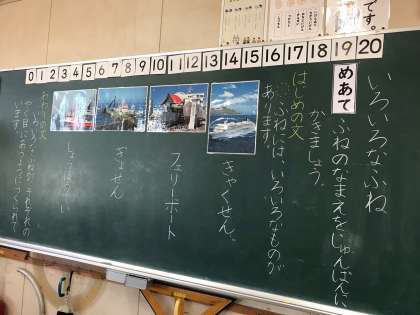 です。
0 1 2 3 4 5 6 7 8 9 10 11 12 13 14 15 16 17 18 19 20
いろいろなふね
めあて
ふねのなまえをじゅんばんに
かきましょう。
はじめの文
ふねには、いろいろなものが
あります。
きゃくせん。
フェリーボート
ぎょせん
しょうぼうてい
おわりの文
いろいろなふねが、それぞれの
やくめにあうようにつくられて
います。